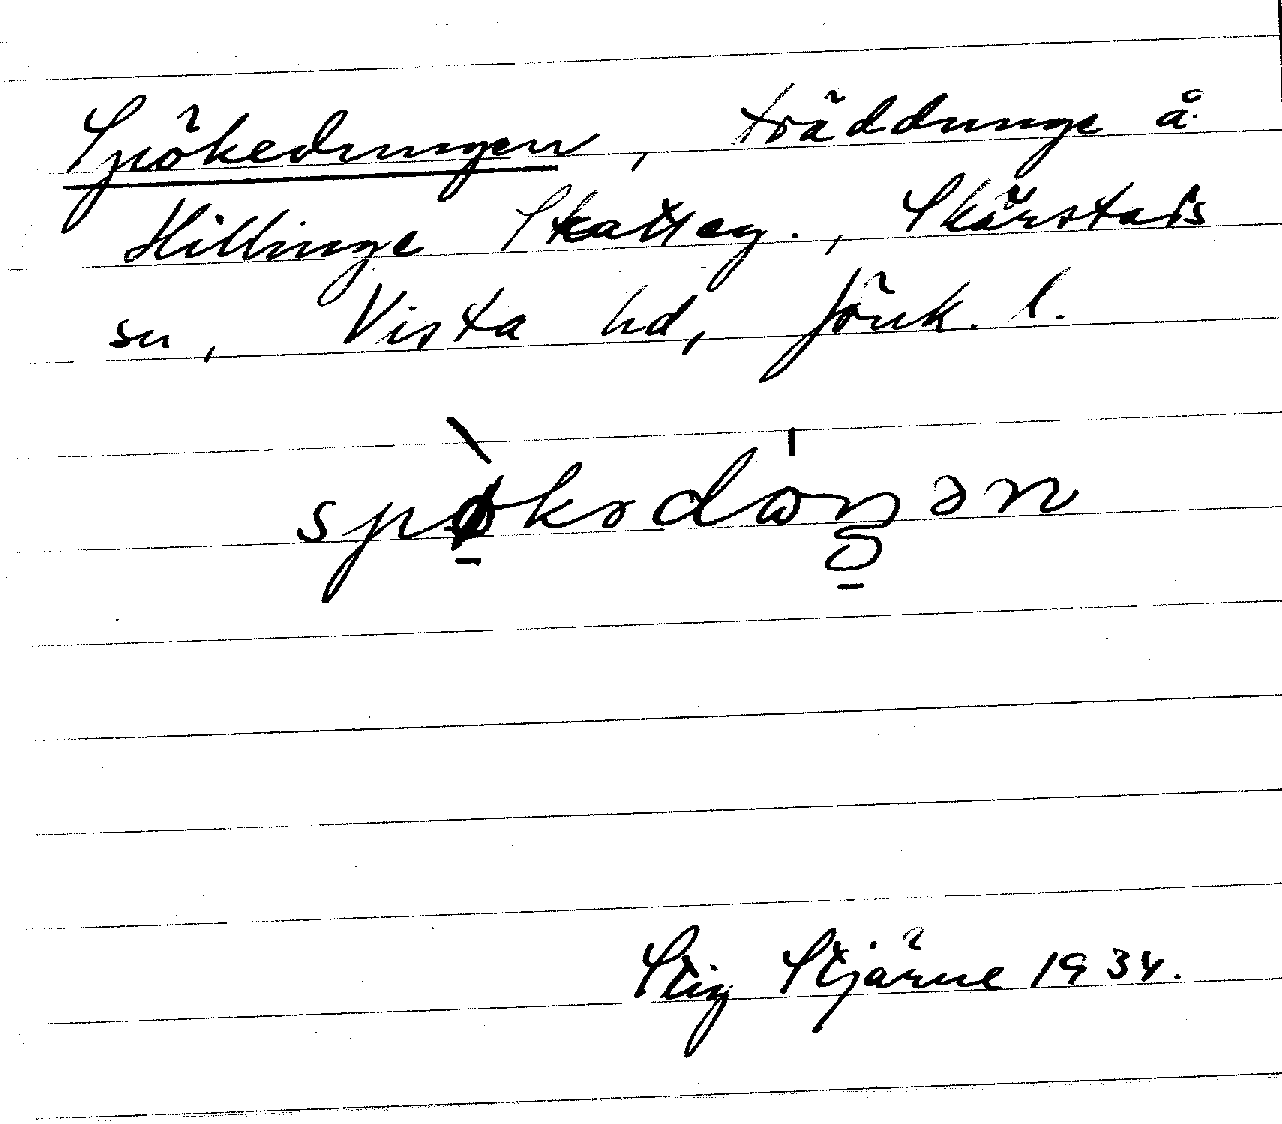 Spökedungen, träddunge å
Hillinge Skatteg., Skärstads
sn, Vista hd, Jönk. l.
Stig Stjärne 1934.